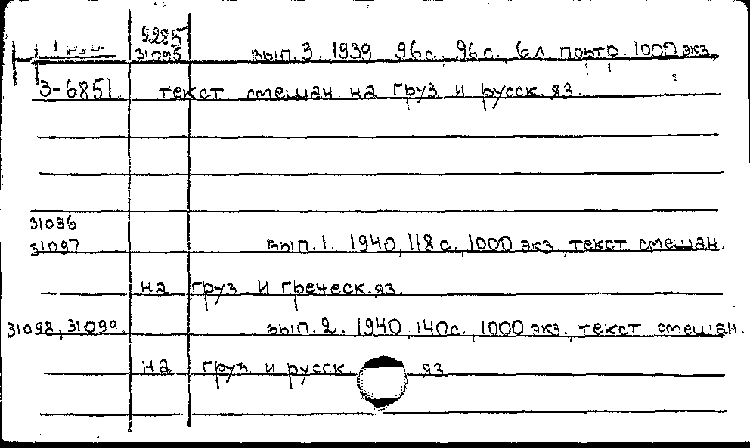 2285
31095 вып. 3. 1939 96 с. 96 с. 6 л. портр. 1000 экз.
3-6851. текст смешан на груз и русск. яз.
31096
31097 вып. 1. 1940, 118 с., 1000 экз, текст смешан.
на груз и греческ. яз.
31098, 31099. вып. 2. 1940, 140 с., 1000 экз., текст смешан.
на груз и русск яз